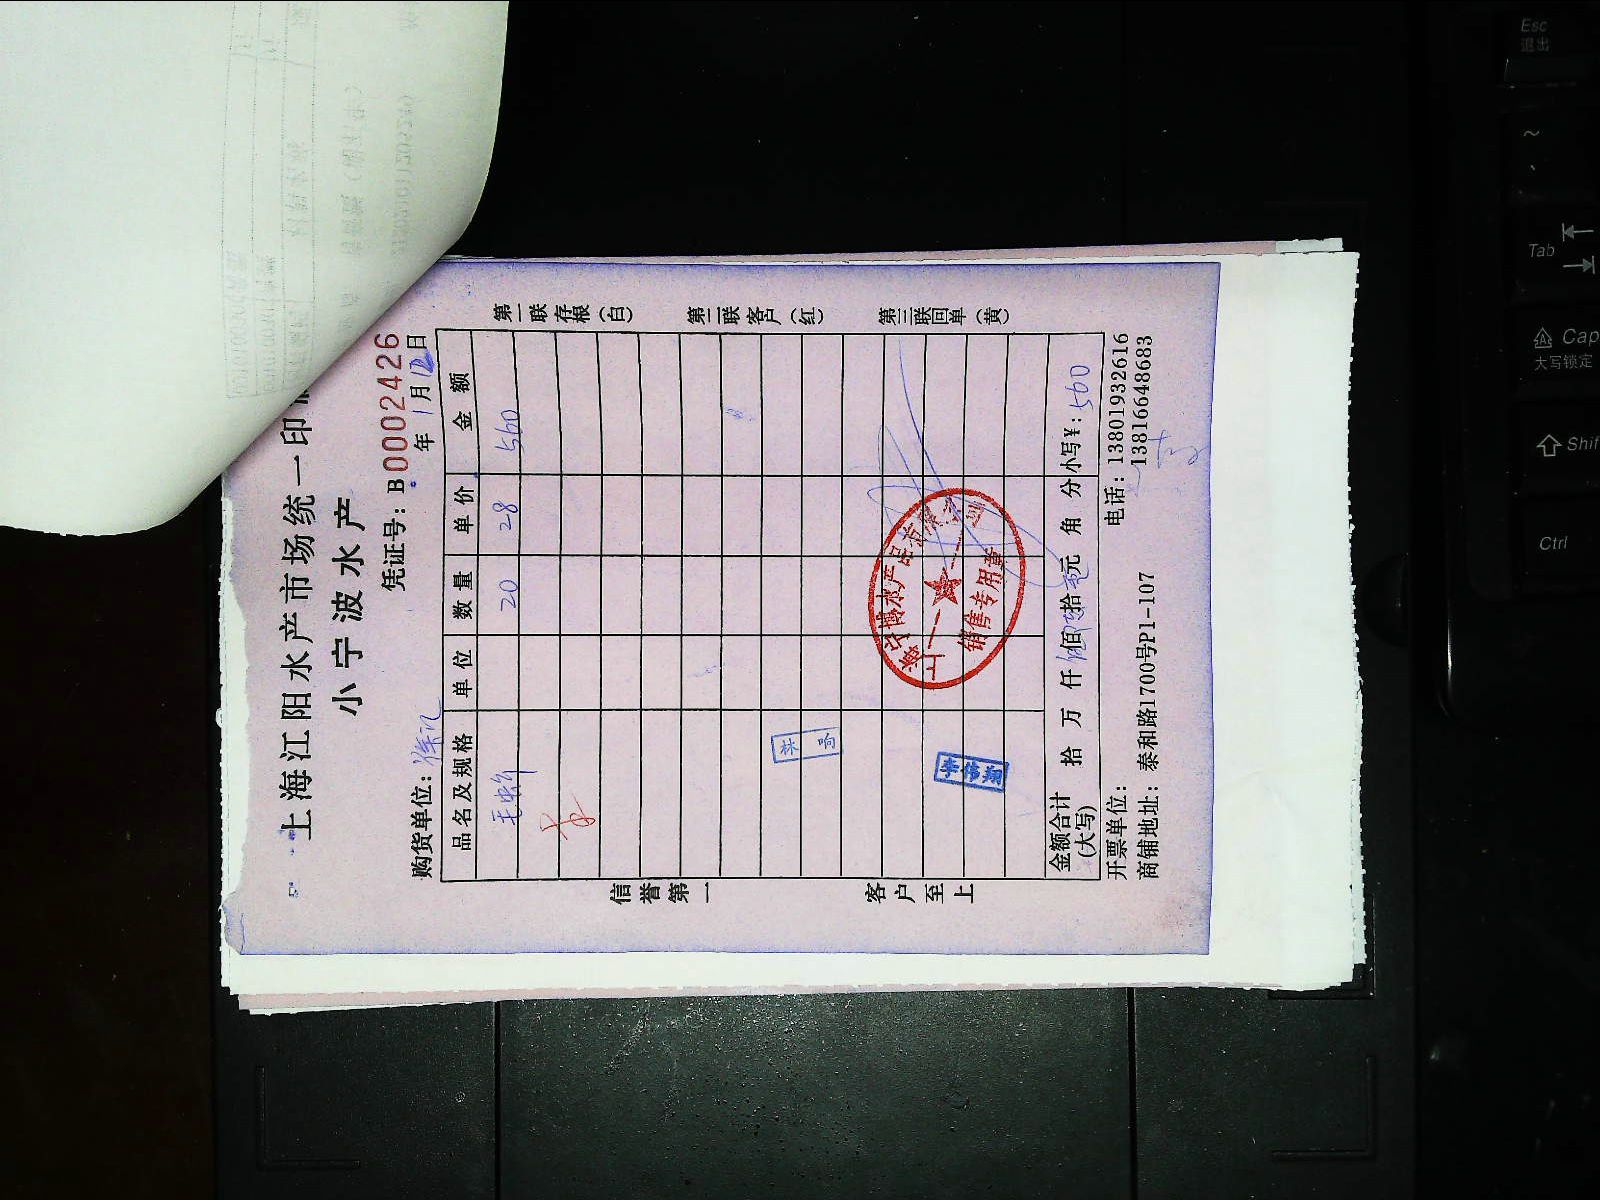 上海江阳水产市场统一印
小宁波水产
凭证号：B0002426
购货单位：徐汇
年1月12日
品名及规格 单位 数量 单价 金额
毛蚶 20 28 560
第一联存根（白）
第二联客户（红）
第三联回单（黄）
信誉第一
客户至上
李伟翔
销售专用章
金额合计（大写） 拾 万 仟 伍佰陆拾元 角 分 小写¥：560
开票单位：
电话：13801932616
13816648683
商铺地址：泰和路1700号P1-107
Esc
退出
~
Tab
Cap
大写锁定
Shif
Ctrl